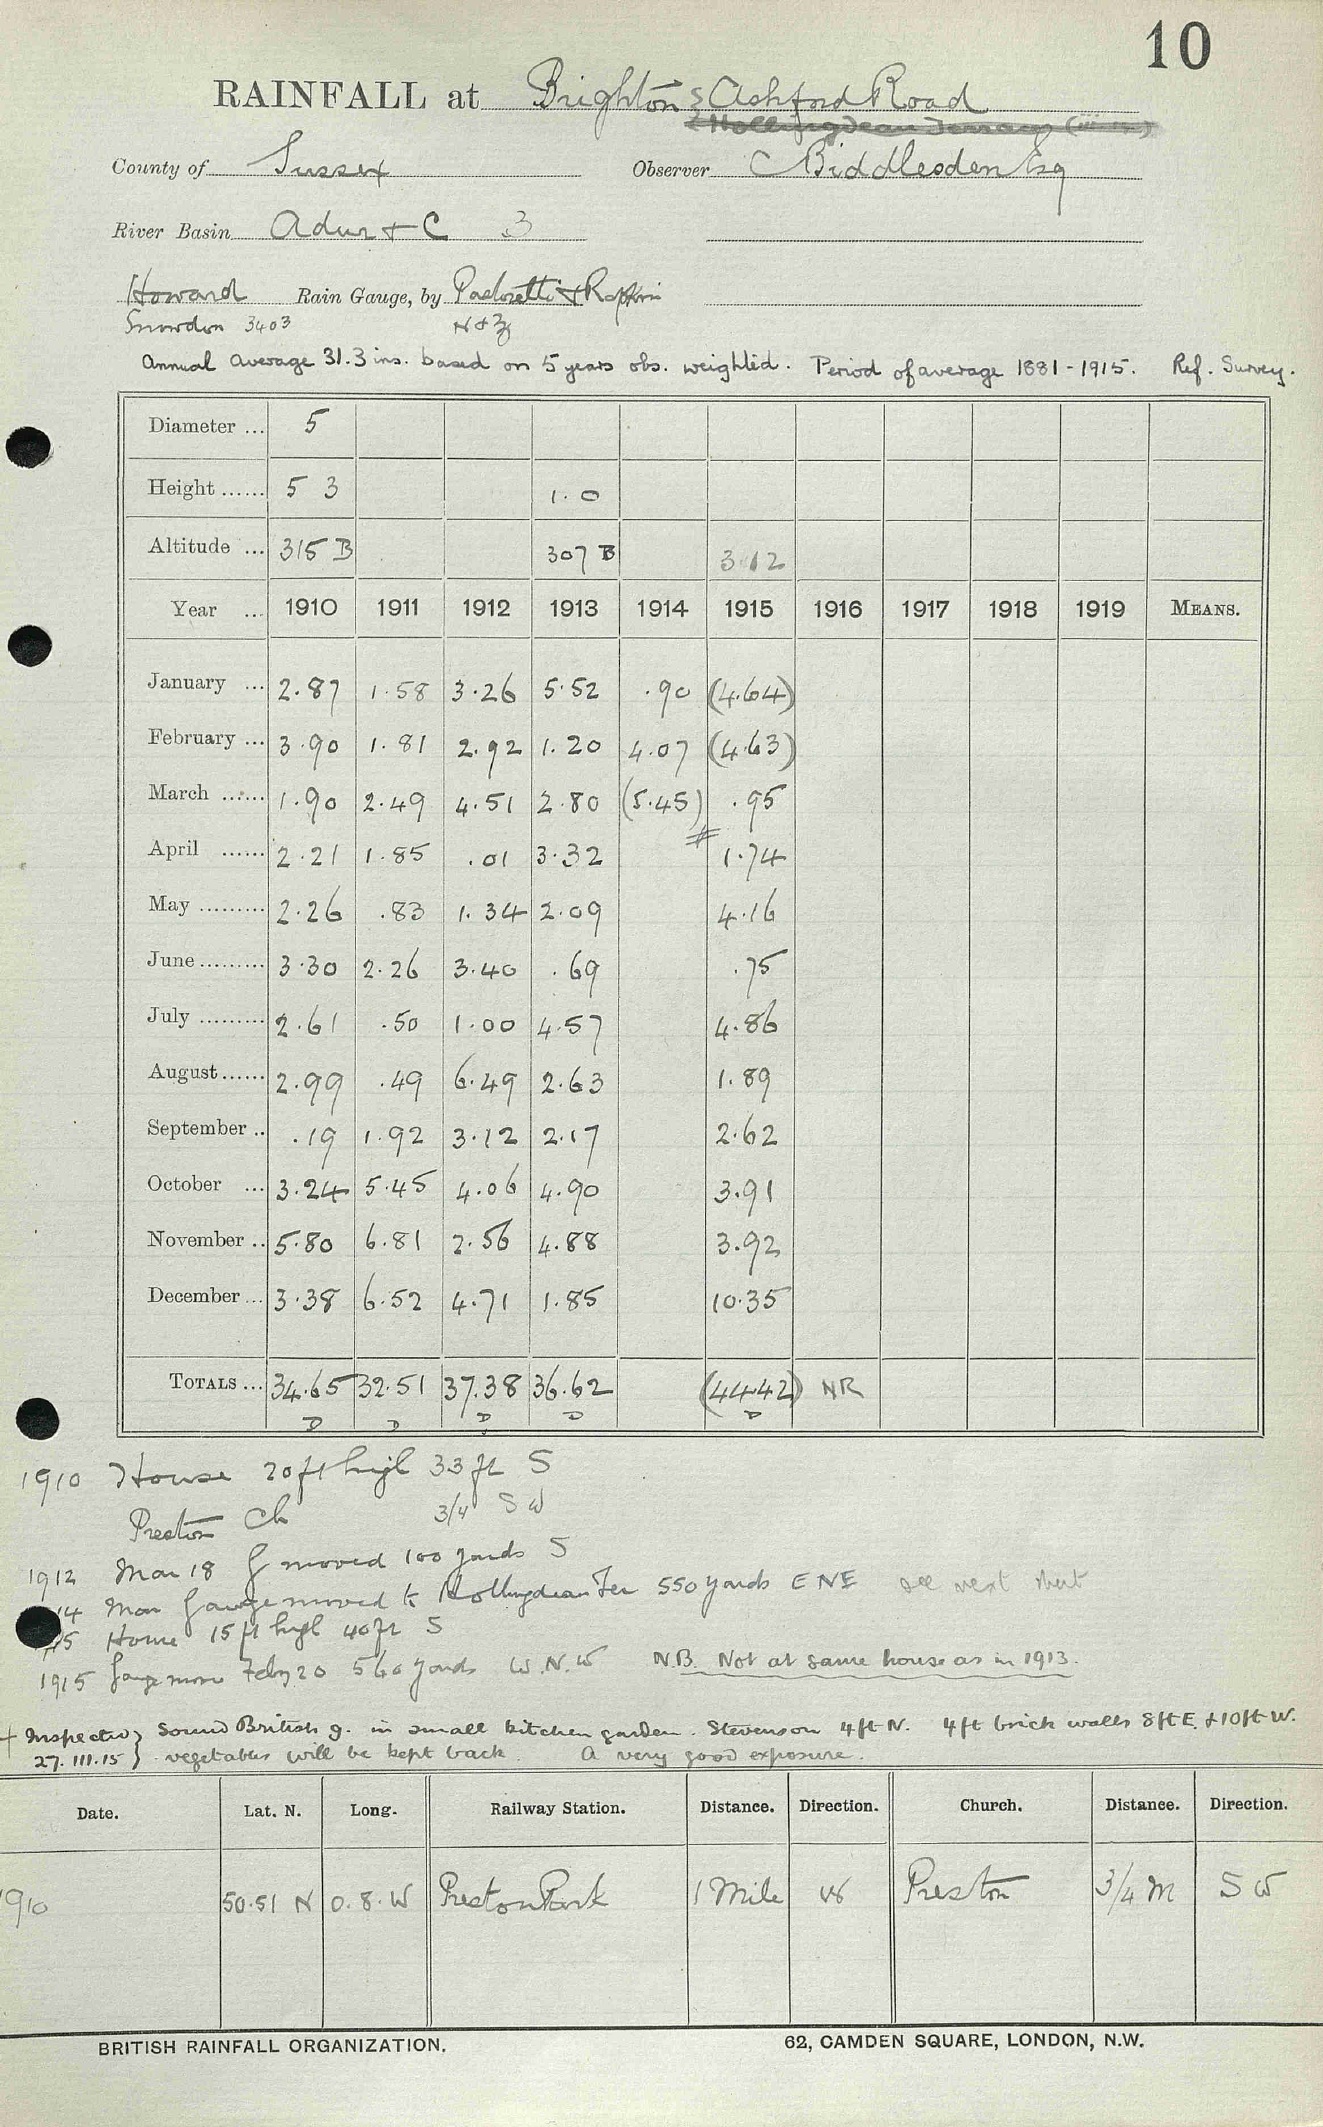 10
RAINFALL at Brighton Ashford Road
Hollingdean Terrace
County of Sussex Observer C Biddlesden Esq
River Basin Adur & C 3
Howard Rain Gauge, by Pastorelli & Rapkin
Snowdon 3403 N & Z
Annual Average 31.3 ins. based on 5 years obs. weighted. Period of average 1881-1915. Ref. Survey.
Diameter ... 5
Height ...... 5 3 1. 0
Altitude ... 315 B 307 B 312
Year ... 1910 1911 1912 1913 1914 1915 1916 1917 1918 1919 MEANS.
January ... 2.87 1.58 3.26 5.52 .90 (4.64)
February ... 3.90 1.81 2.92 1.20 4.07 (4.63)
March ...... 1.90 2.49 4.51 2.80 (5.45) .95
April ...... 2.21 1.85 .01 3.32 1.74
May ......... 2.26 .83 1.34 2.09 4.16
June ......... 3.30 2.26 3.40 .69 .75
July ......... 2.61 .50 1.00 4.57 4.86
August ...... 2.99 .49 6.49 2.63 1.89
September .. .19 1.92 3.12 2.17 2.62
October ... 3.24 5.45 4.06 4.90 3.91
November .. 5.80 6.81 2.56 4.88 3.92
December ... 3.38 6.52 4.71 1.85 10.35
TOTALS ... 34.65 32.51 37.38 36.62 (44.42) NR
D D D D D
1910 House 20 ft high 33 ft S
Preston Ch 3/4 SW
1912 Mar 18 G moved 100 yards S
14 Mar Gauge moved to Hollingdean Ter 550 yards ENE see next sheet
15 House 15 ft high 40 ft S
1915 Gauge move Feby 20 560 yards W.N.W N.B. Not at same house as in 1913.
+ Inspected } Sound British g. in small kitchen garden. Stevenson 4 ft N. 4 ft brick walls 8 ft E. & 10 ft W.
27.III.15 } vegetables will be kept back. A very good exposure.
Date. Lat. N. Long. Railway Station. Distance. Direction. Church. Distance. Direction.
1910 50.51 N 0.8.W Preston Park 1 Mile W Preston 3/4 M SW
BRITISH RAINFALL ORGANIZATION. 62, CAMDEN SQUARE, LONDON, N.W.